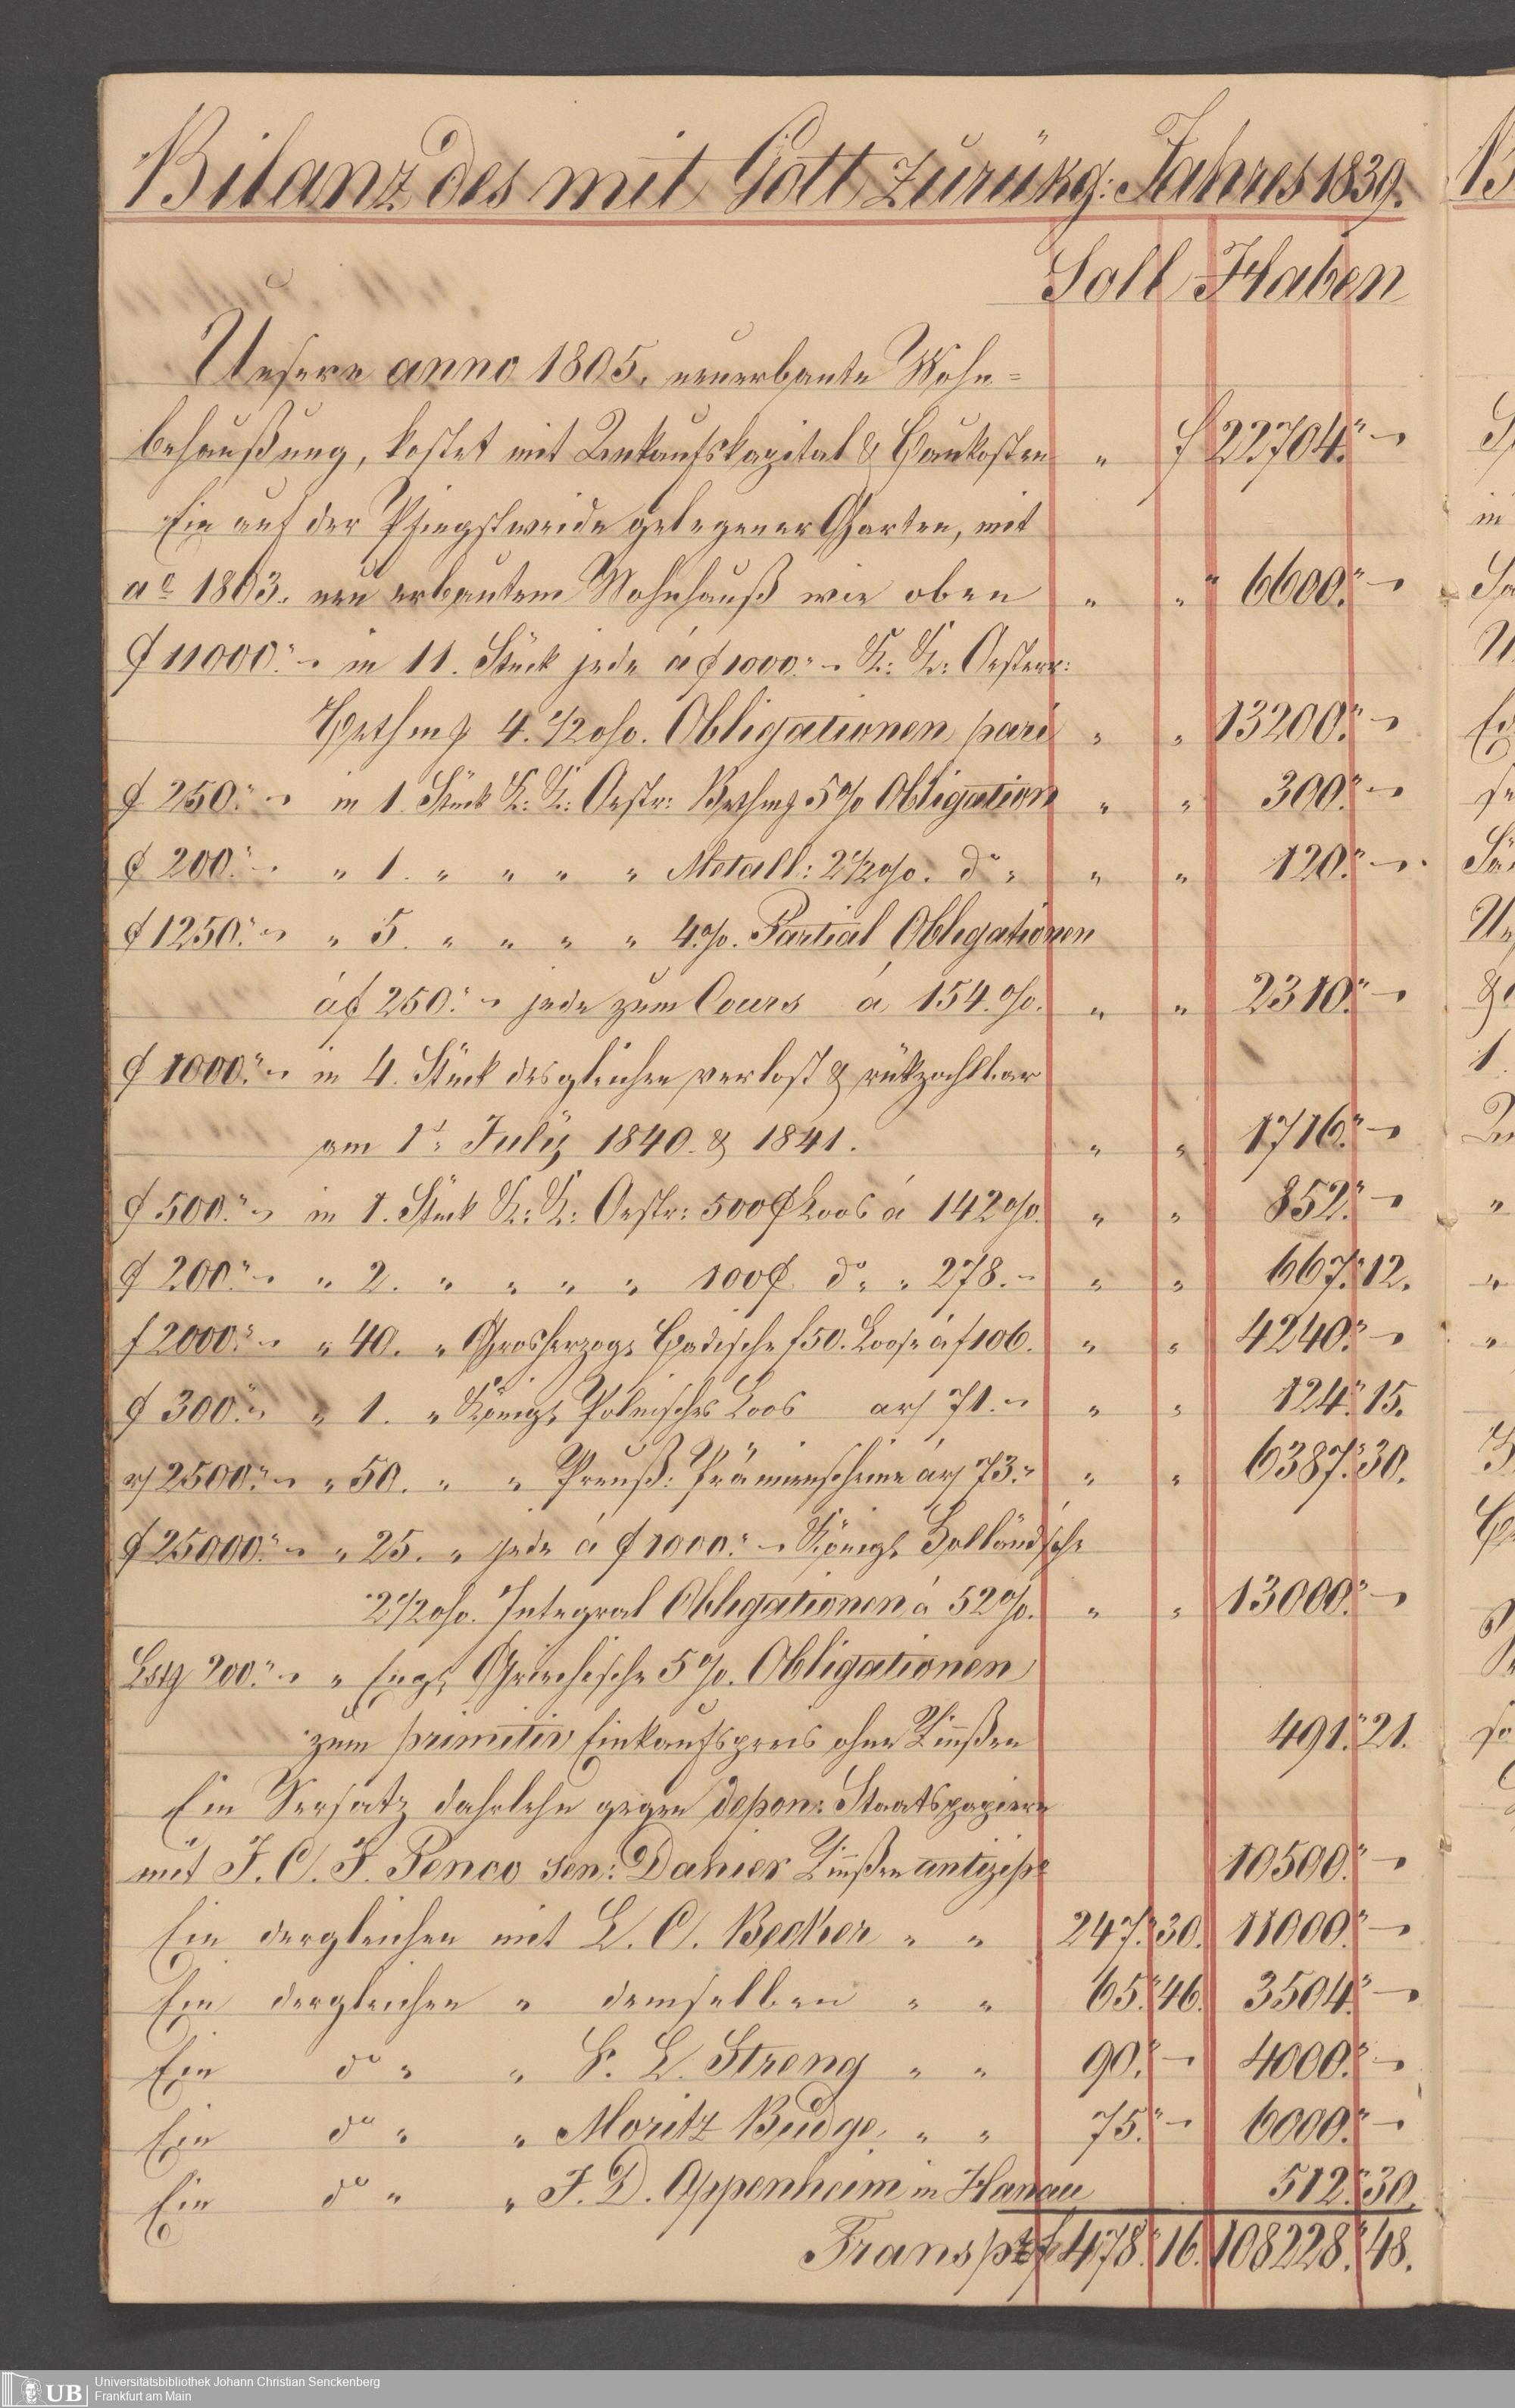 Bilanz des mit Gott zurükg: Jahres 1839.
Soll Haben
Unsere anno 1805. neuerbaute Wohn=
behaußung, kostet mit Ankaufskapital & Baukosten „ f 22704." -
Ein auf der Pfingstweide gelegener Garten, mit
ao 1803. neu erbautem Wohnhauß wie oben „ „ " 6600." -
₰ 11000." - in 11. Stück jede á ₰ 1000." - K: K: Oesterr:
Bethm: 4. 1/2 o/o. Obligationen pari „ „ 13200." -
₰ 250." - in 1 Stück K: K: Oestr: Bethm: 5 % Obligation „ „ 300." -
₰ 200." - „ 1. „ „ „ „ Metall: 2 1/2 o/o. do „ „ „ 120." -
₰ 1250." - „ 5. „ „ „ „ 4 %. Partial Obligationen
á ₰ 250." - jede zum Cours á 154. o/o. „ „ 2310." -
₰ 1000." - in 4. Stück desgleichen verlost & rükzahlbar
am 1t July 1840. & 1841. „ „ 1716." -
₰ 500." - in 1. Stück K: K: Oestr: 500 ₰ Loos á 142 o/o. „ „ 852." -
₰ 200." - „ 2. „ „ „ „ 100 ₰ do „ „ 278. - „ „ 667." 12.
f 2000." - „ 40. „ Grosherzog: Badische f 50. Loose á f 106. „ „ 4240." -
₰ 300." - „ 1. „ Königl: Polnisches Loos a r/ 71. - „ „ 124." 15.
r/ 2500." - „ 50. „ „ Preuß: Prämienscheine á r/ 73." „ „ 6387." 30.
₰ 25000." - „ 25. „ jede á ₰ 1000." - Königl: Holländische
2 1/2 o/o. Integral Obligationen á 52 o/o. „ „ 13000." -
Lstg 200." - „ Engl: Griechische 5 %. Obligationen
zum primitiv Einkaufspreis ohne Zinßen 491." 21.
Ein Versatz darlehn gegen depon: Staatspapiere
mit J. C. J. Penco sen: Dahier Zinßen antizipo 10500." -
Ein dergleichen mit L. C. Becker „ „ 247." 30. 11000." -
Ein dergleichen „ demselben „ „ 65." 46. 3504." -
Ein do „ „ S. L. Streng „ „ 90." - 4000." -
Ein do „ „ Moritz Budge „ „ 75." - 6000." -
Ein do „ „ J. D. Oppenheim in Hanau 512." 30.
Transpt f 478." 16. 108228." 48.
UB Universitätsbibliothek Johann Christian Senckenberg
Frankfurt am Main